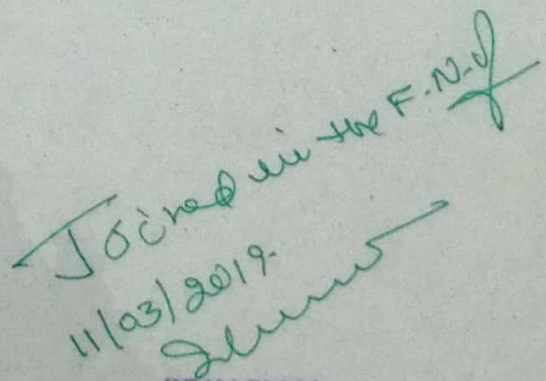 Joined in the F.N. of
11/03/2019.